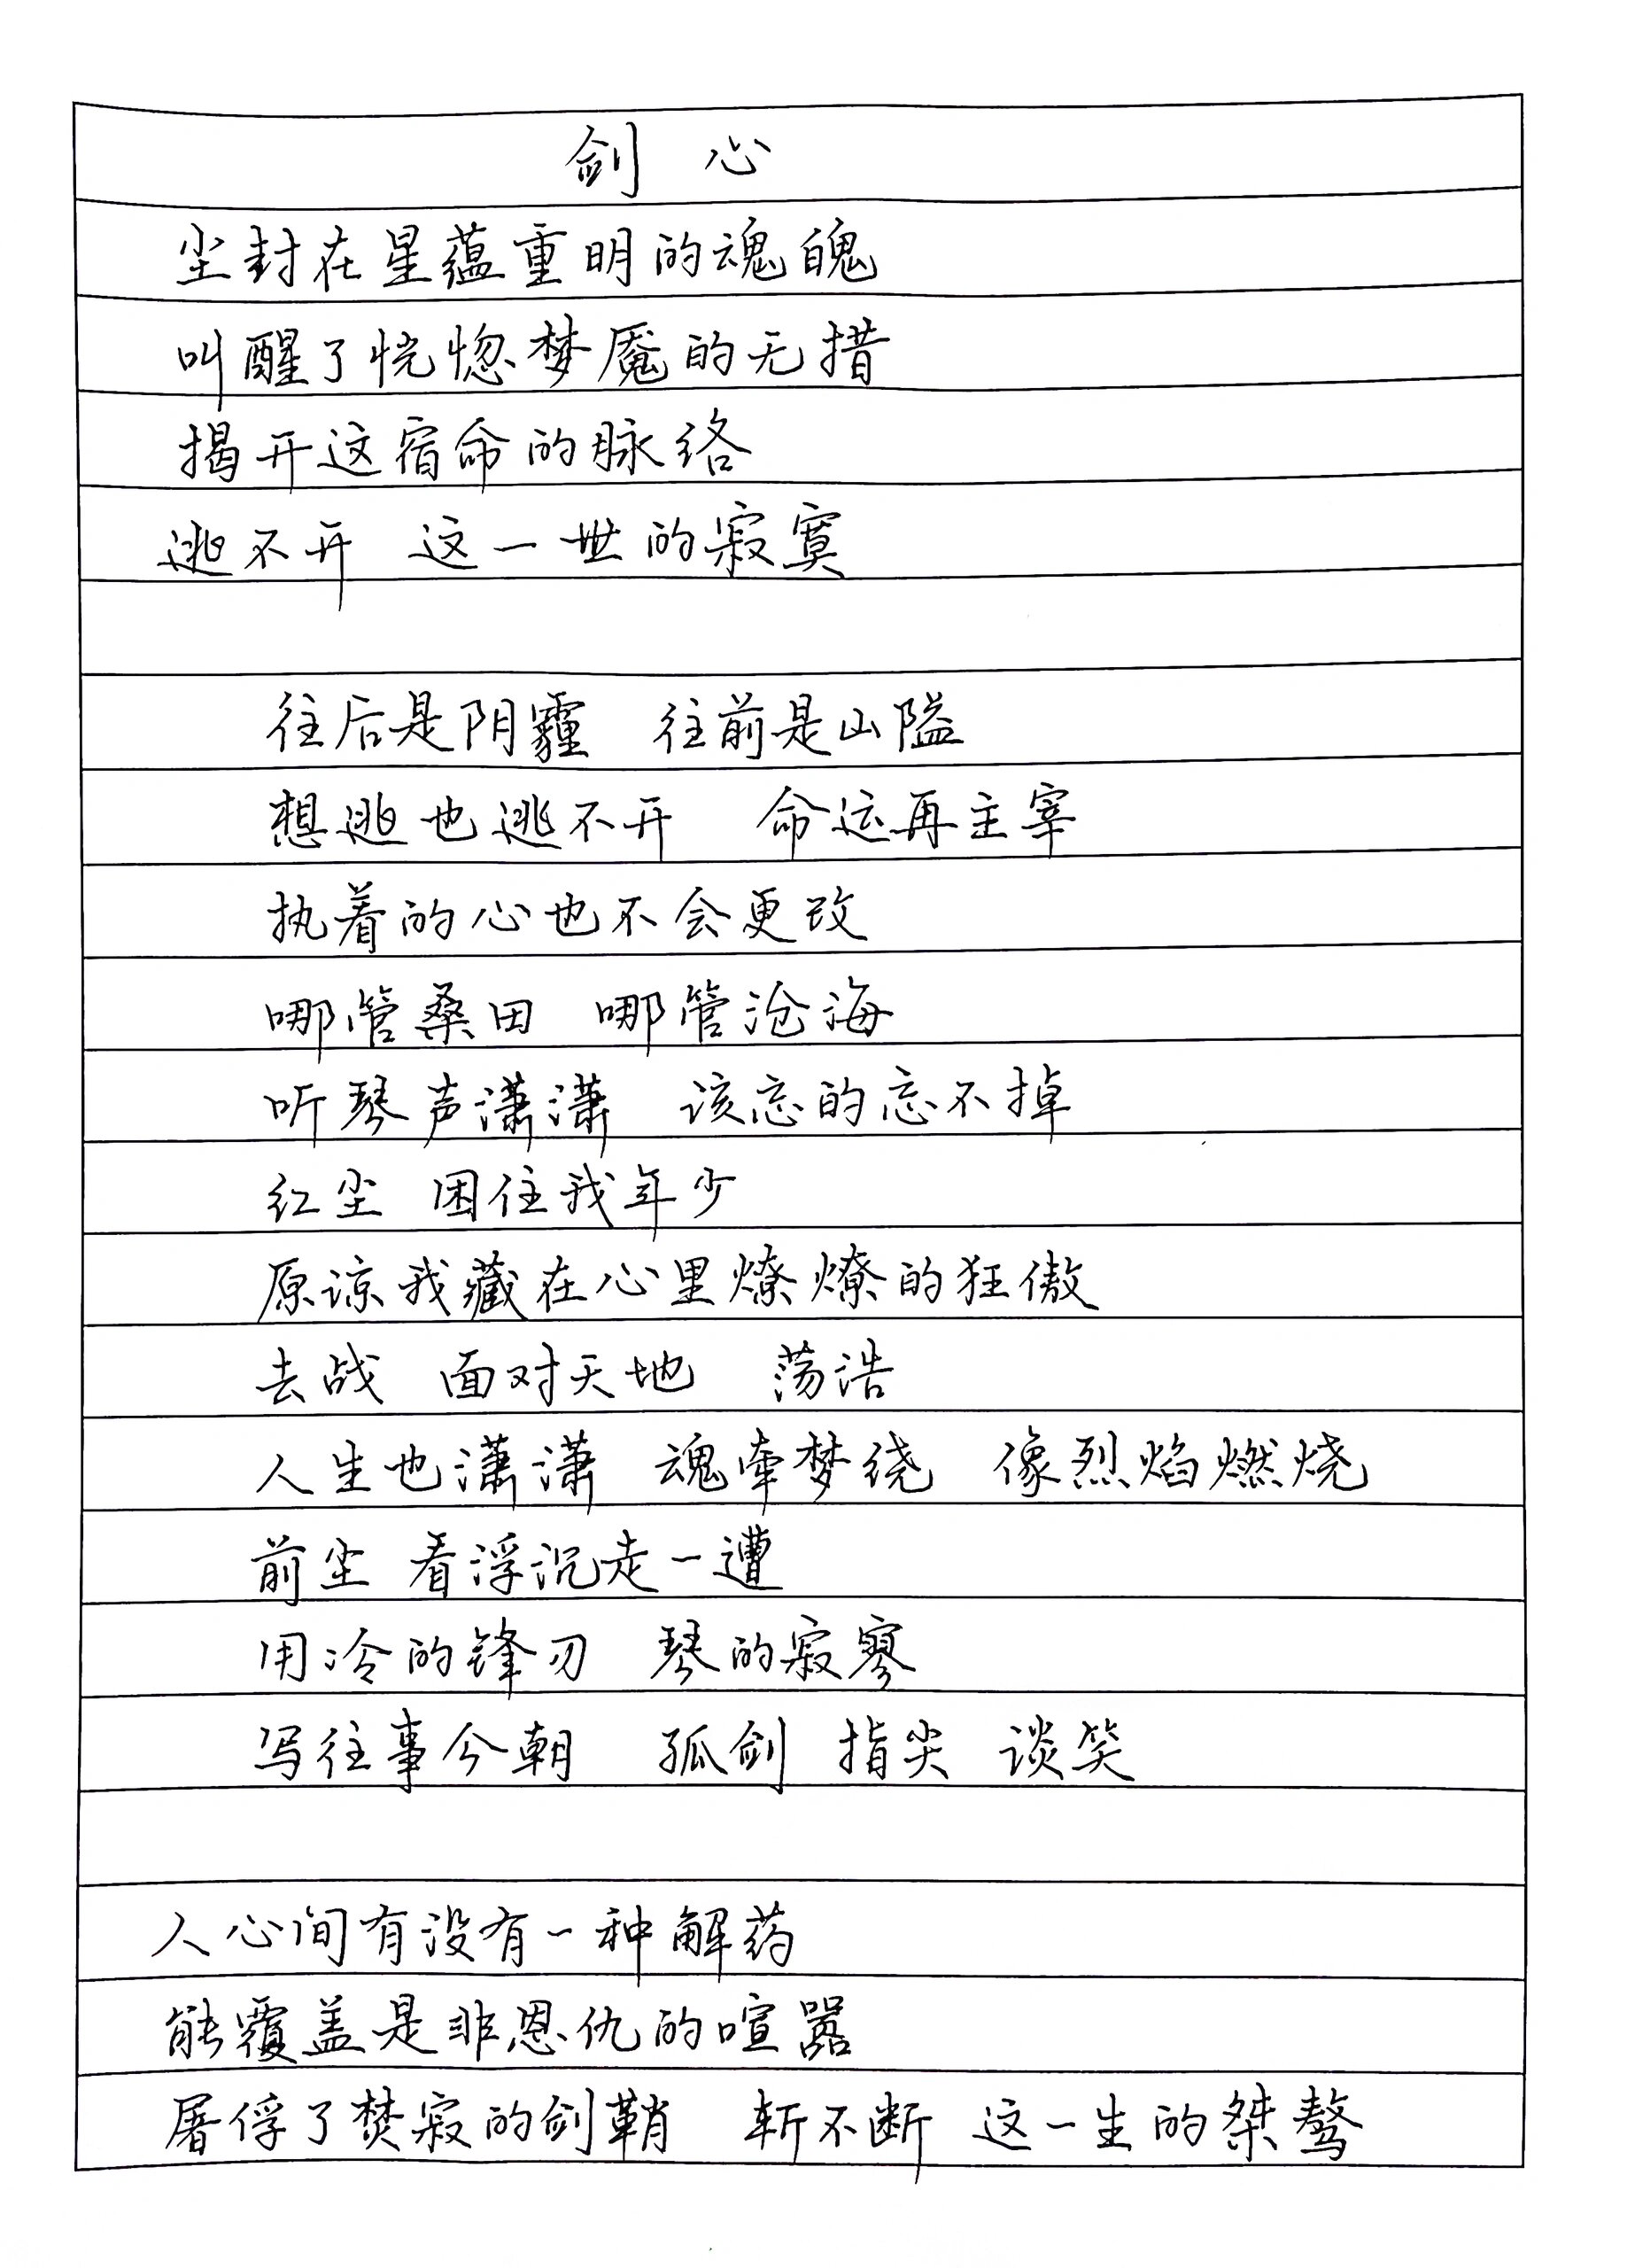 剑 心
尘封在星蕴重明的魂魄
叫醒了恍惚梦魇的无措
揭开这宿命的脉络
逃不开 这一世的寂寞
往后是阴霾 往前是山隘
想逃也逃不开 命运再主宰
执着的心也不会更改
哪管桑田 哪管沧海
听琴声潇潇 该忘的忘不掉
红尘 困住我年少
原谅我藏在心里燎燎的狂傲
去战 面对天地 荡浩
人生也潇潇 魂牵梦绕 像烈焰燃烧
前尘 看浮沉走一遭
用冷的锋刃 琴的寂寥
写往事今朝 孤剑 指尖 谈笑
人心间有没有一种解药
能覆盖是非恩仇的喧嚣
屠俘了焚寂的剑鞘 斩不断 这一生的桀骜